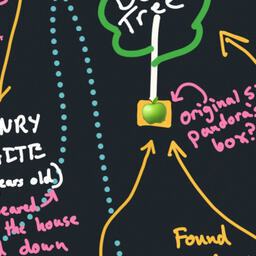 Tree
original s
pandora's
box?
NRY
ears old)
eared
the house
down
Found